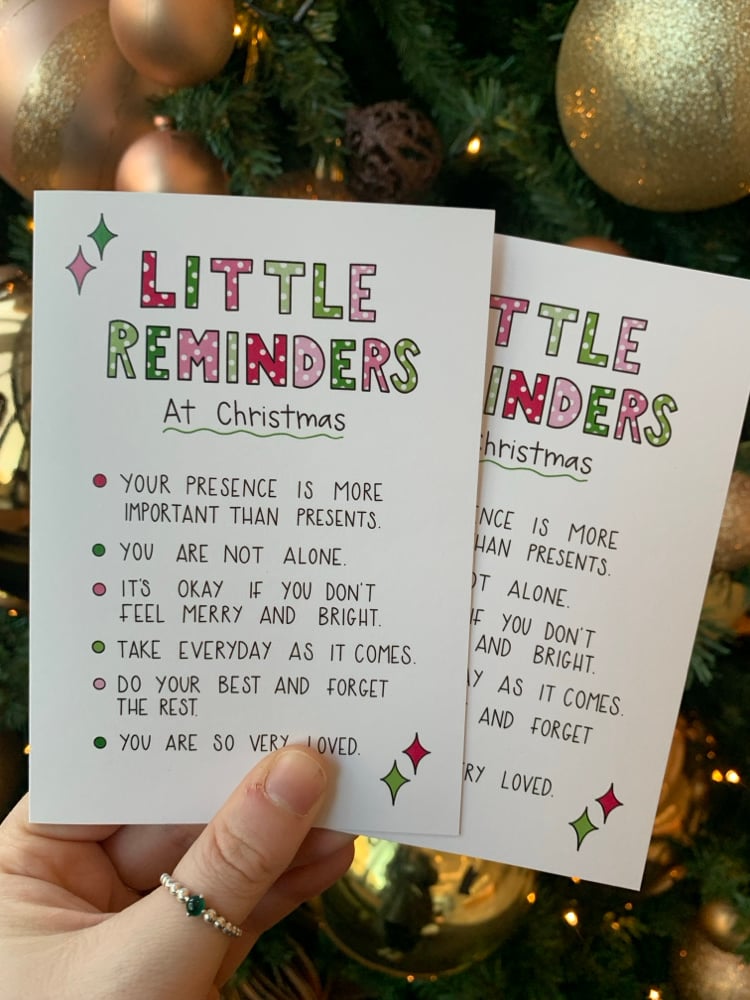 LITTLE
REMINDERS
At Christmas
YOUR PRESENCE IS MORE
IMPORTANT THAN PRESENTS.
YOU ARE NOT ALONE.
IT'S OKAY IF YOU DON'T
FEEL MERRY AND BRIGHT.
TAKE EVERYDAY AS IT COMES.
DO YOUR BEST AND FORGET
THE REST.
YOU ARE SO VERY LOVED.
TTLE
INDERS
Christmas
NCE IS MORE
HAN PRESENTS.
OT ALONE.
IF YOU DON'T
AND BRIGHT.
AY AS IT COMES.
AND FORGET
RY LOVED.